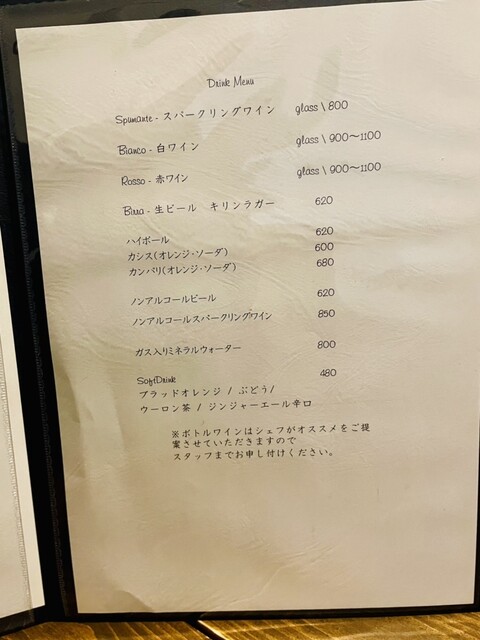 Drink Menu
Spumante - スパークリングワイン glass \ 800
Bianco - 白ワイン glass \ 900～1100
Rosso - 赤ワイン glass \ 900～1100
Birra - 生ビール キリンラガー 620
ハイボール 620
カシス(オレンジ・ソーダ) 600
カンパリ(オレンジ・ソーダ) 680
ノンアルコールビール 620
ノンアルコールスパークリングワイン 850
ガス入りミネラルウォーター 800
SoftDrink 480
ブラッドオレンジ / ぶどう/
ウーロン茶 / ジンジャーエール辛口
※ボトルワインはシェフがオススメをご提
案させていただきますので
スタッフまでお申し付けください。